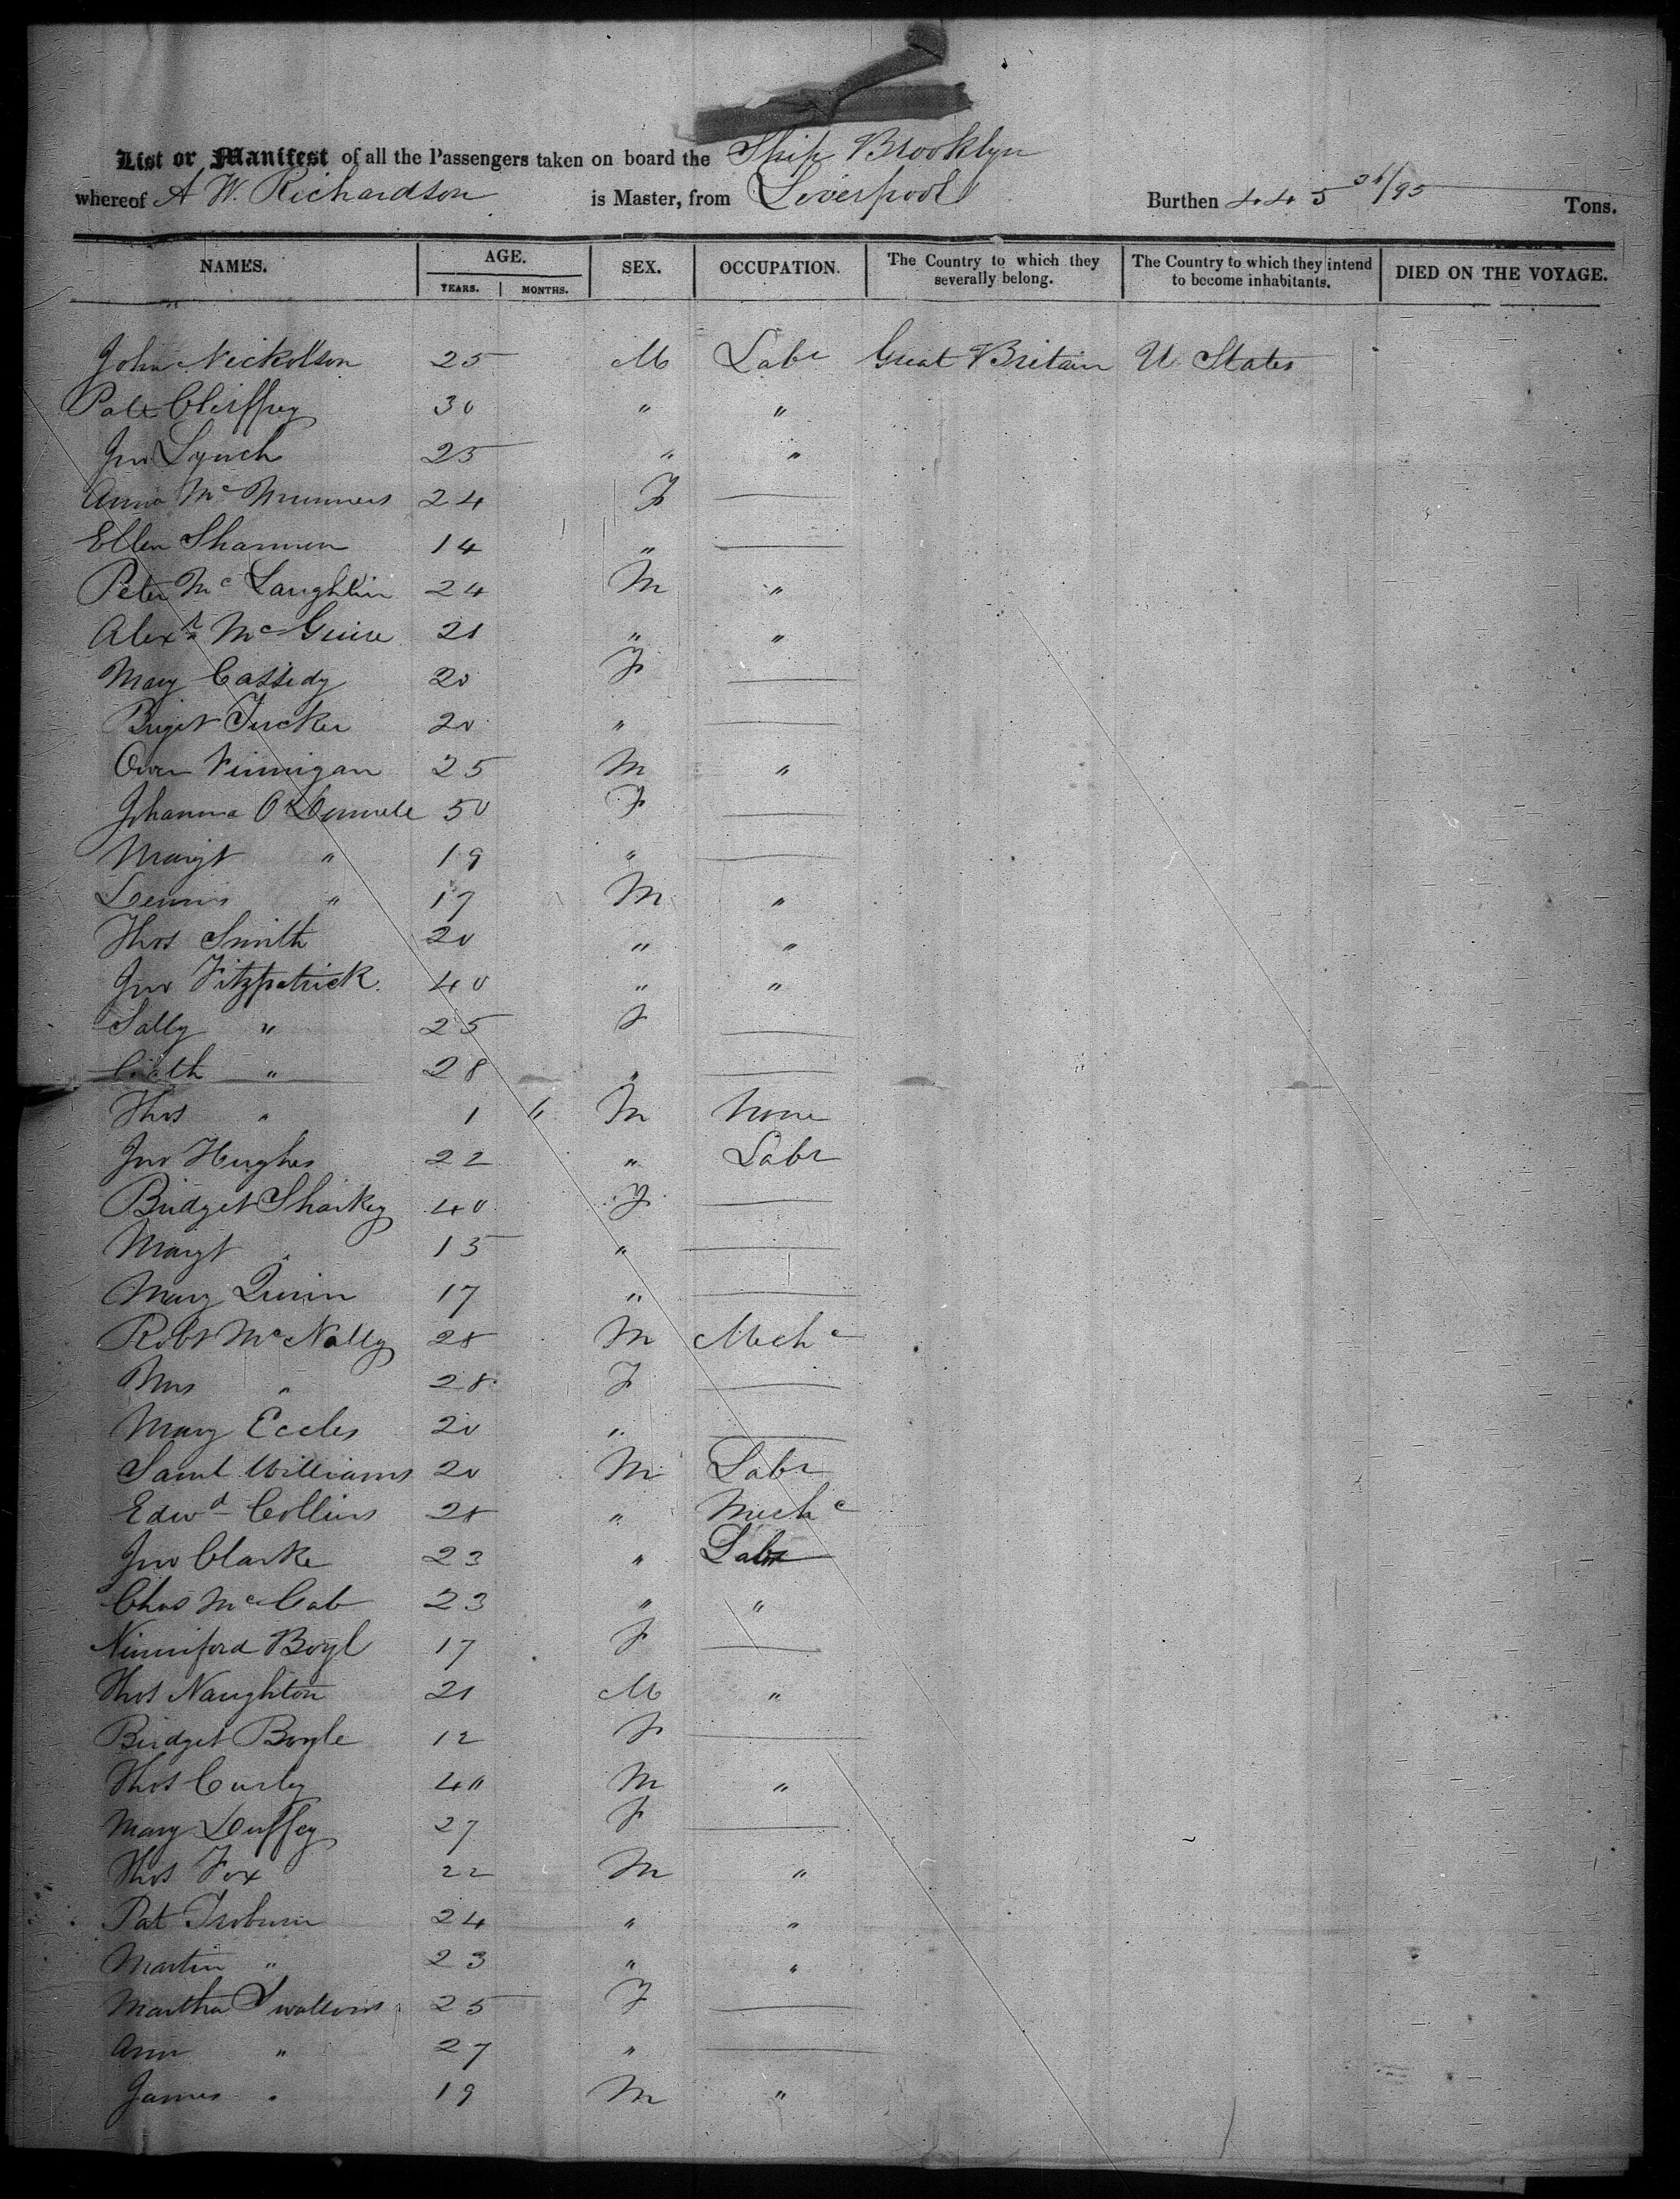 List or Manifest of all the Passengers taken on board the Ship Brooklyn
whereof A W. Richardson is Master, from Liverpool Burthen 445 /95 Tons.
NAMES. AGE. SEX. OCCUPATION. The Country to which they severally belong. The Country to which they intend to become inhabitants. DIED ON THE VOYAGE.
YEARS. MONTHS.
John Nickolson 25 M Labr Great Britain U States
30 " "
Jno Lynch 25 " "
Anna Mc 24 F
Ellen Shannon 14 "
Peter Mc Laughlin 24 M "
Alexr Mc Guire 21 " "
Mary Cassidy 20 F
Briget Tucker 20 "
Owen Finnigan 25 M "
Johanna O'Donnell 50 F
Margt " 19 "
Dennis " 17 M "
Thos Smith 20 " "
Jno Fitzpatrick. 40 " "
Sally " 25 F
" 28 "
Thos " 1 " M None
Jno Hughes 22 " Labr
Bridget Sharkey 40 F
Margt " 15 "
Mary Quinn 17 "
Robt Mc Nally 28 M Mechc
Mrs " 28 F
Mary Eccles 20 "
Saml Williams 20 M Labr
Edwd Collins 28 " Mechc
Jno Clarke 23 " Labr
Chas Mc Cab 23 " "
Boyl 17 F
Thos Naughton 21 M "
Bridget Boyle 12 F
Thos Curley 40 M "
Mary Duffey 27 F
Thos Fox 22 M "
Pat 24 " "
Martin " 23 " "
Martha 25 F
Ann " 27 "
James " 19 M "